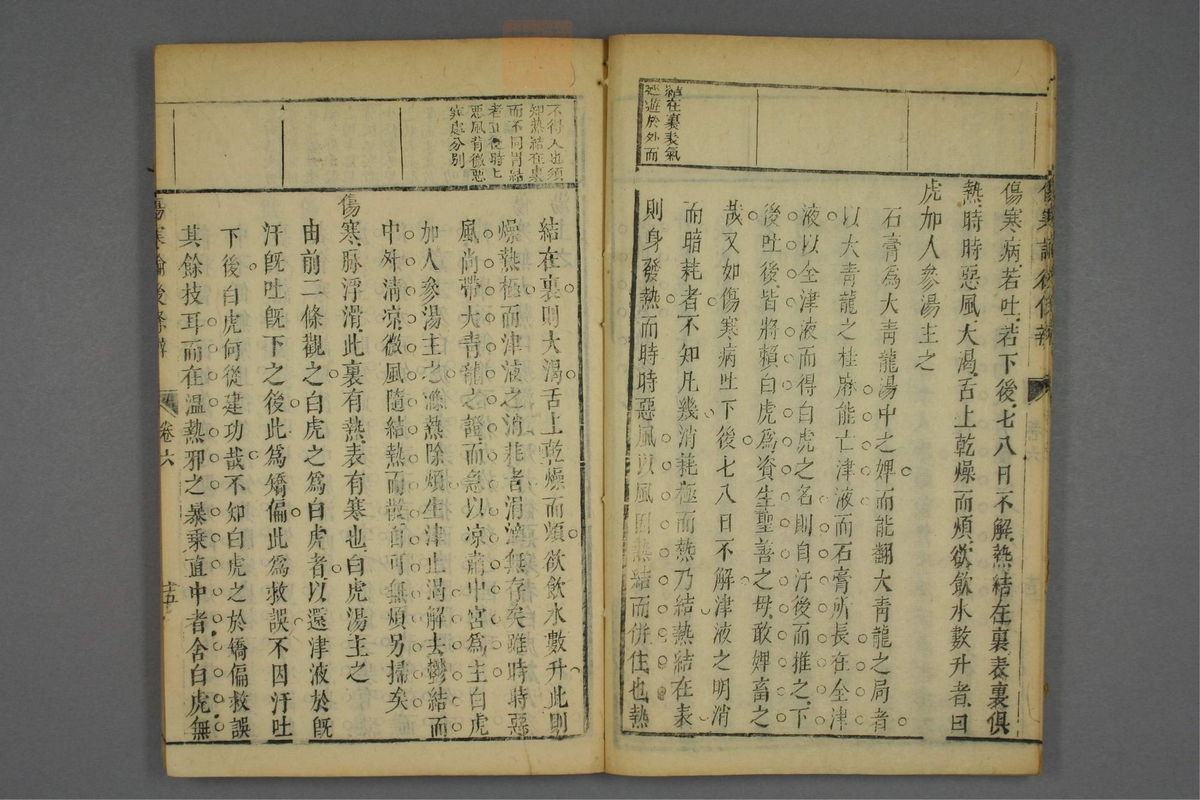 傷寒論後條辨
結在裏表氣
遊於外而
傷寒病若吐若下後七八日不解熱結在裏表裏俱
熱時時惡風大渴舌上乾燥而煩欲飲水數升者白
虎加人參湯主之
石膏爲大靑龍湯中之婢而能翻大靑龍之局者
以大青龍之桂麻能亡津液而石膏所長在全津
液以全津液而得白虎之名則自汗後而推之下
後吐後皆將賴白虎爲資生聖善之母敢婢畜之
哉又如傷寒病吐下後七八日不解津液之明消
而暗耗者不知凡幾消耗極而熱乃結熱結在表
則身發熱而時時惡風以風因熱結而併住也熱
不得入也須
知熱結在裏
而不同胃結
者正從時上
惡風背微惡
寒處分別
結在裏則大渴舌上乾燥而煩欲飲水數升此則
燥熱極而津液之消耗者涓滴無存矣雖時時惡
風尚帶大青龍之證而急以凉肅中宮爲主白虎
加人參湯主之滌熱除煩生津止渴解去鬱結而
中外淸凉微風隨結熱而散自可無煩另掃矣
傷寒脉浮滑此裏有熱表有寒也白虎湯主之
由前二條觀之白虎之爲白虎者以還津液於旣
汗旣吐旣下之後此爲矯偏此爲救誤不因汗吐
下後白虎何從建功哉不知白虎之於矯偏救誤
其餘技耳而在溫熱邪之暴乘直中者舍白虎無
傷寒論後條辨 卷六 十五